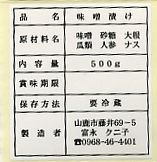 品名 味噌漬け
原材料名 味噌 砂糖 大根
瓜類 人参 ナス
内容量 500g
賞味期限
保存方法 要冷蔵
製造者 山鹿市藤井69-5
富永 クニ子
☎0968-46-4401